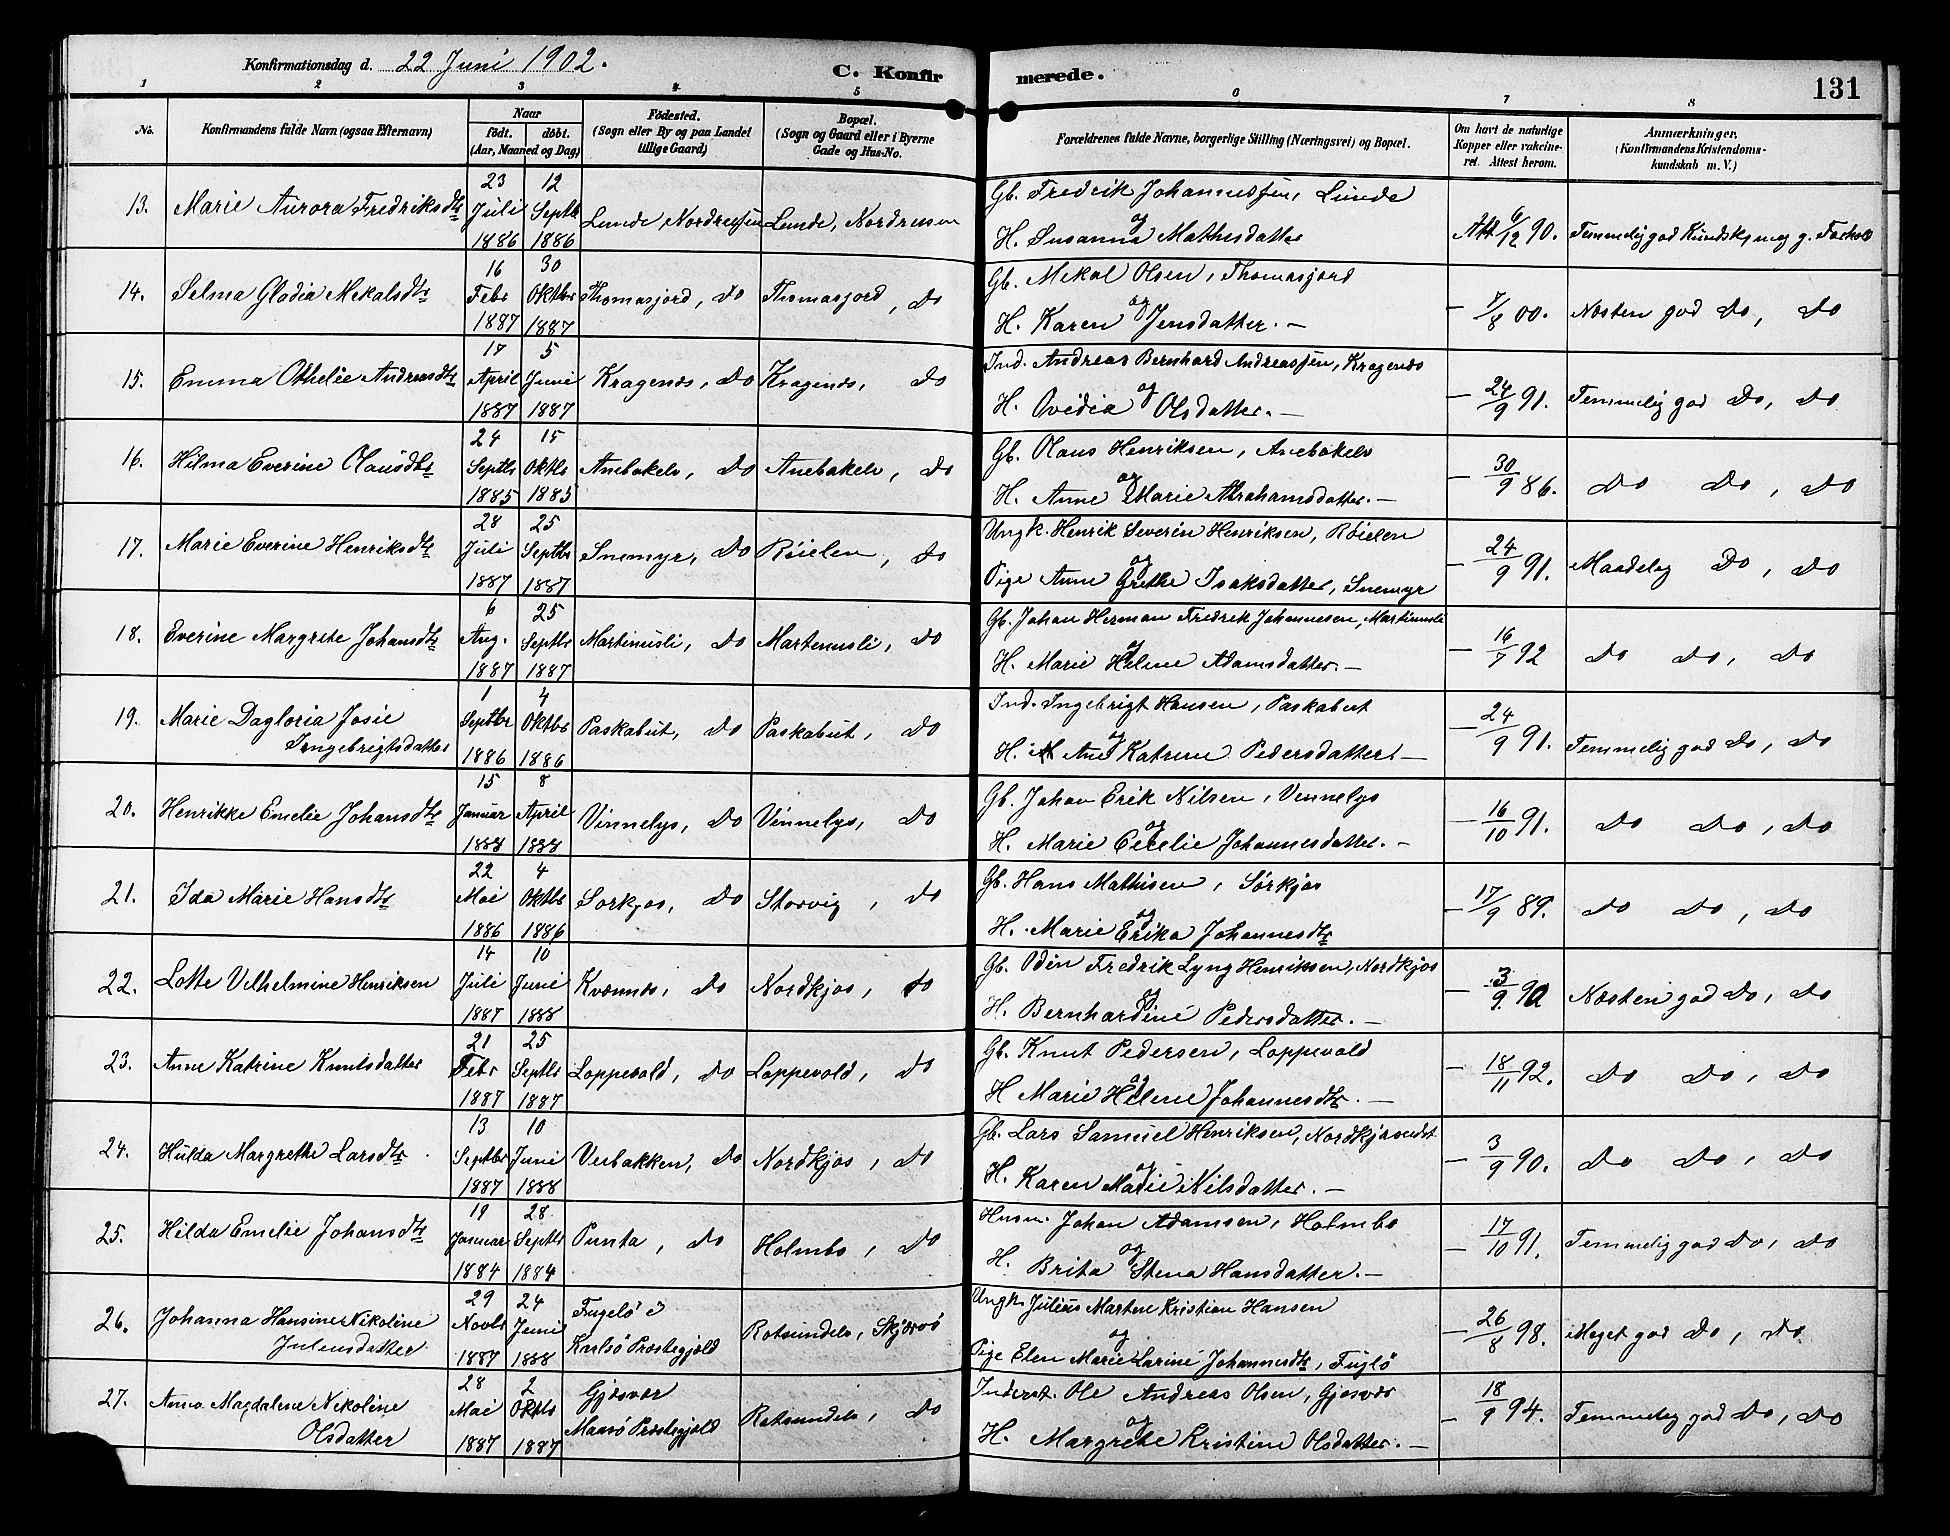 Konfirmationsdag d. 22 Juni 1902.
C. Konfirmerede.
131
1 2 3 4 5 6 7 8
No.
Konfirmandens fulde Navn (ogsaa Efternavn)
Naar
födt. döbt.
(Aar, Maaned og Dag)
Födested.
(Sogn eller By og paa Landet
tillige Gaard)
Bopæl.
(Sogn og Gaard eller i Byerne
Gade og Hus-No.
Forældrenes fulde Navne, borgerlige Stilling (Næringsvei) og Bopæl.
Om havt de naturlige
Kopper eller vakcine-
ret. Attest herom.
Anmærkninger.
(Konfirmandens Kristendoms-
kundskab m. V.)
13. Marie Aurora Fredriksdtr 23 Juli 1886 12 Septbr 1886 Lunde, Nordreisen Lunde, Nordreisen
Gb. Fredrik Johannessen, Lunde
og
H. Susanna Mathisdatter
Att. 6/12 90. Temmelig god Kundsk. meg g. Forhold
14. Selma Gladia Mekalsdtr 16 Febr 1887 30 Oktbr 1887 Thomasjord, do Thomasjord, do
Gb. Mekal Olsen, Thomasjord
og
H. Karen Jensdatter. —
— 7/8 00. Næsten god do, do
15. Emma Othelie Andreasdtr 17 April 1887 5 Juni 1887 Kragenes, do Kragenæs, do
Ind. Andreas Bernhard Andreassen, Kragenæs
og
H. Ovidia Olsdatter. —
— 24/9 91. Temmelig god do, do
16. Hilma Everine Olausdtr 24 Septbr 1885 15 Oktbr 1885 Anebakele, do Anebakele, do
Gb. Olaus Henriksen, Anebakele
og
H. Anne Marie Abrahamsdatter. —
— 30/9 86. do do, do
17. Marie Everine Henriksdtr 28 Juli 1887 25 Septbr 1887 Snemyr, do Röielen, do
Ungk. Henrik Severin Henriksen, Röielen
og
Pige Anne Grethe Isaksdatter, Snemyr
— 24/9 91. Maadelig do, do
18. Everine Margrete Johansdtr 6 Aug. 1887 25 Septbr 1887 Martinusli, do Martenusli, do
Gb. Johan Herman Fredrik Johannesen, Martinusli
og
H. Marie Helene Adamsdatter. —
— 16/7 92 do do, do
19. Marie Dagloria Josie
Ingebrigtsdatter 1 Septbr 1886 4 Oktbr 1886 Paskabut, do Paskabut, do
Ind. Ingebrigt Hansen, Paskabut
og
H. Ane Katrine Pedersdatter. —
— 24/9 91. Temmelig god do, do
20. Henrikke Emelie Johansdtr 15 Januar 1888 8 April 1888 Vinnelys, do Vinnelys, do
Gb. Johan Erik Nilsen, Vinnelys
og
H. Marie Cecelie Johannesdatter. —
— 16/10 91. do do, do
21. Ida Marie Hansdtr 22 Mai 1886 4 Oktbr 1886 Sorkjos, do Storvig, do
Gb. Hans Mathisen, Sörkjos
og
H. Marie Erika Johannesdtr
— 17/9 89. do do, do
22. Lotte Vilhelmine Henriksen 14 Juli 1887 10 Juni 1888 Kvænnes, do Nordkjos, do
Gb. Odin Fredrik Lyng Henriksen, Nordkjos
og
H. Bernhardine Pedersdatter. —
— 3/9 90 Næsten god do, do
23. Anne Katrine Knutsdatter 21 Febr 1887 25 Septbr 1887 Loppevold, do Loppevold, do
Gb. Knut Pedersen, Loppevold
og
H Marie Helene Johannesdtr. —
— 18/11 92. do do, do
24. Hulda Margrethe Larsdtr 13 Septbr 1887 10 Juni 1888 Vebakken, do Nordkjos, do
Gb. Lars Samuel Henriksen, Nordkjoseidet
og
H. Karen Marie Nilsdatter. —
— 3/9 90. do do, do
25. Hilda Emelie Johansdtr 19 Januar 1884 28 Septbr 1884 Punta, do Holmbo, do
Husm. Johan Adamsen, Holmbo
og
H. Brita Stena Hansdatter. —
— 17/10 91. Temmelig god do, do
26. Johanna Hansine Nikoline
Julensdatter 29 Novbr 1887 24 Juni 1888 Fugelö i
Karlsö Præstegjeld Rotsundele, Skjervö
Ungk. Julius Marten Kristian Hansen
og
Pige Elen Marie Larine Johannesdtr, Fuglö
— 26/8 98. Meget god do, do
27. Anna Magdalene Nikoline
Olsdatter 28 Mai 1887 2 Oktbr 1887 Gjesvær
Maasö Præstegjeld Rotsundele, do
Inderst. Ole Andreas Olsen, Gjesvær
og
H. Margrete Kristine Olsdatter. —
— 18/9 94. Temmelig god do, do